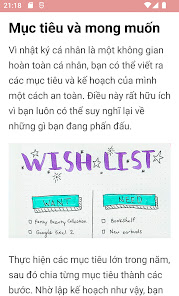 21:18
Mục tiêu và mong muốn
Vì nhật ký cá nhân là một không gian
hoàn toàn cá nhân, bạn có thể viết ra
các mục tiêu và kế hoạch của mình
một cách an toàn. Điều này rất hữu ích
vì bạn luôn có thể suy nghĩ lại về
những gì bạn đang phấn đấu.
WISH LIST
WANT
NEED
Fenty Beauty Collection
Google Pixel 2
Bookshelf
New earbuds
Thực hiện các mục tiêu lớn trong năm,
sau đó chia từng mục tiêu thành các
bước. Nhờ lập kế hoạch như vậy, bạn